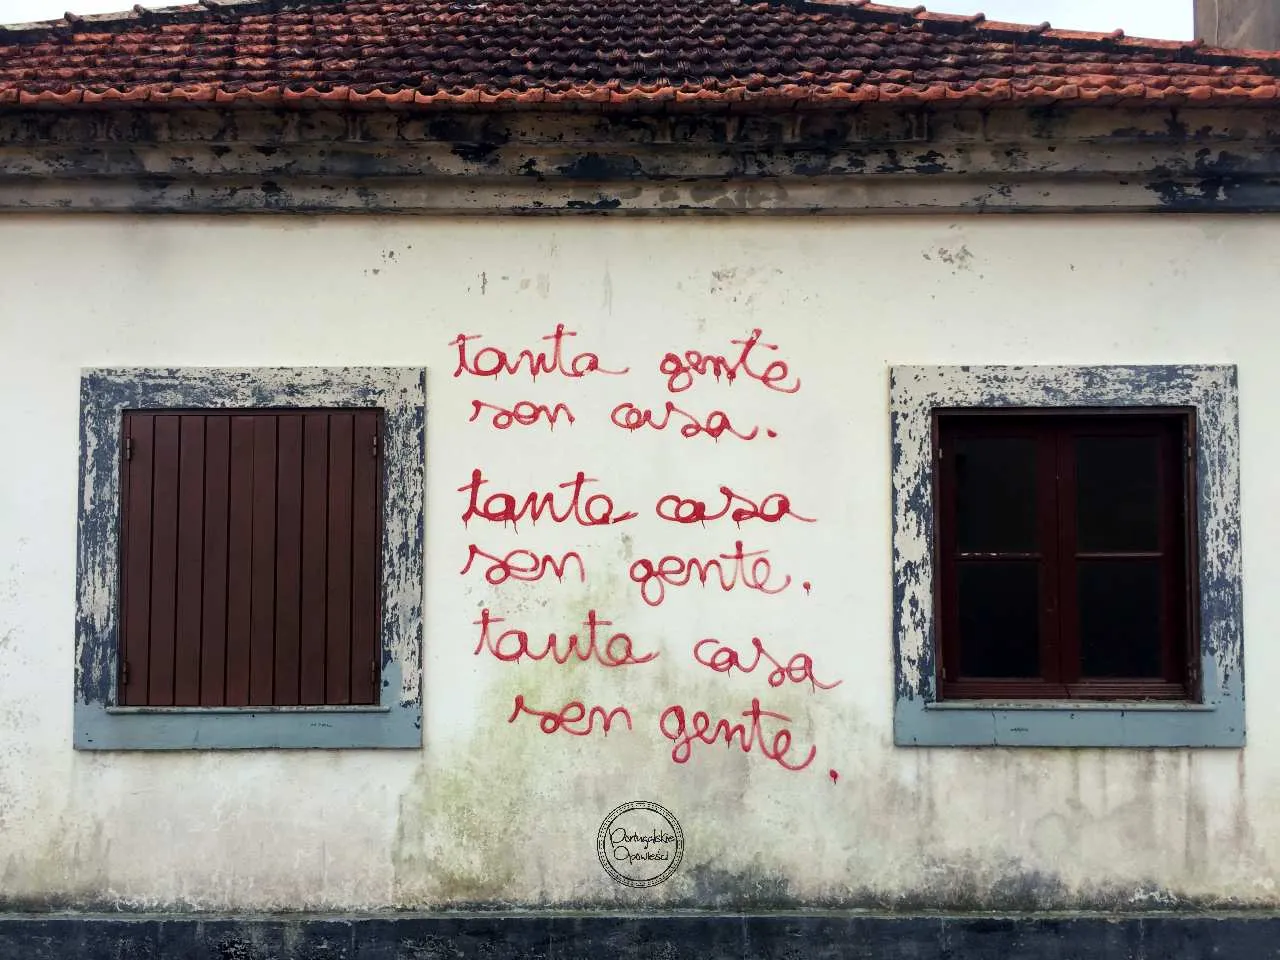 tanta gente
sen casa.
tanta casa
sen gente.
tanta casa
sen gente.
Portugalskie
Opowieści